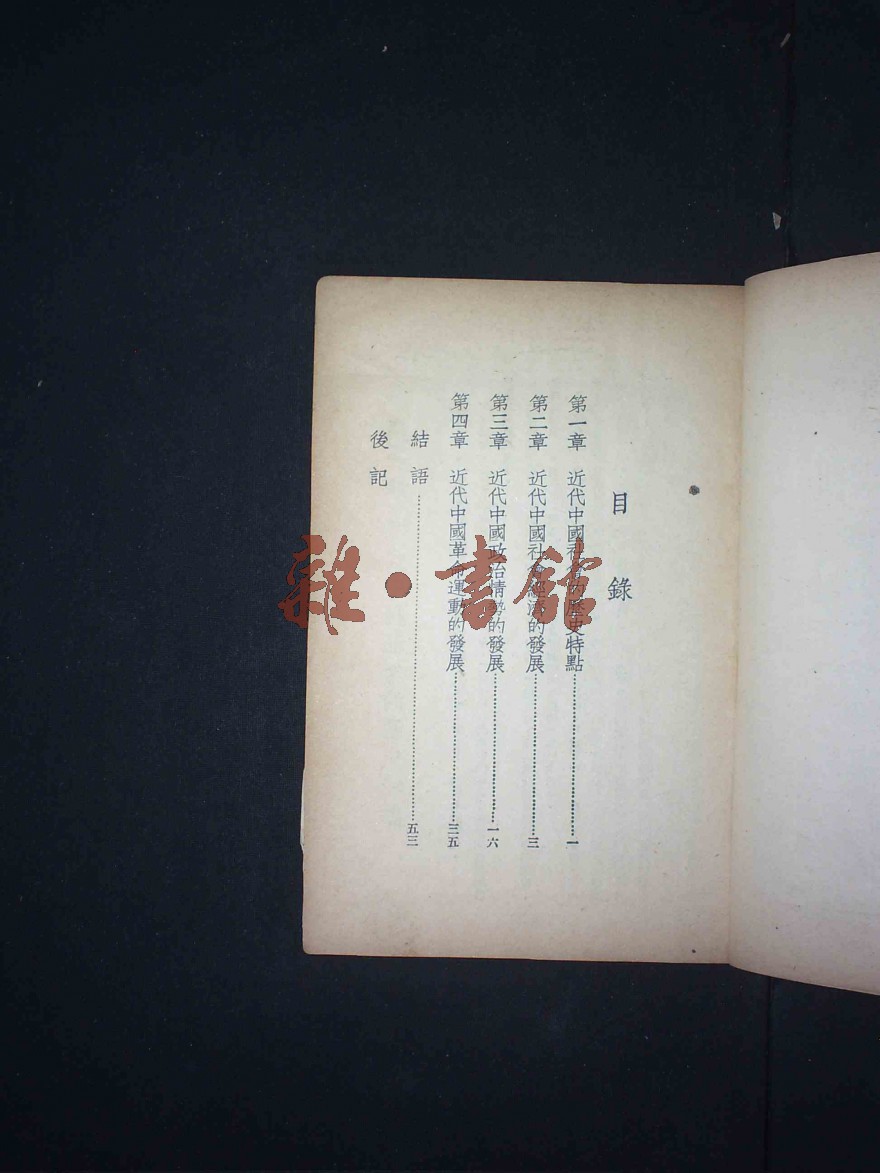 目錄
第一章 近代中國社會的歷史特點 一
第二章 近代中國社會經濟的發展 三
第三章 近代中國政治情勢的發展 一六
第四章 近代中國革命運動的發展 三五
結語 五三
後記
雜·書館